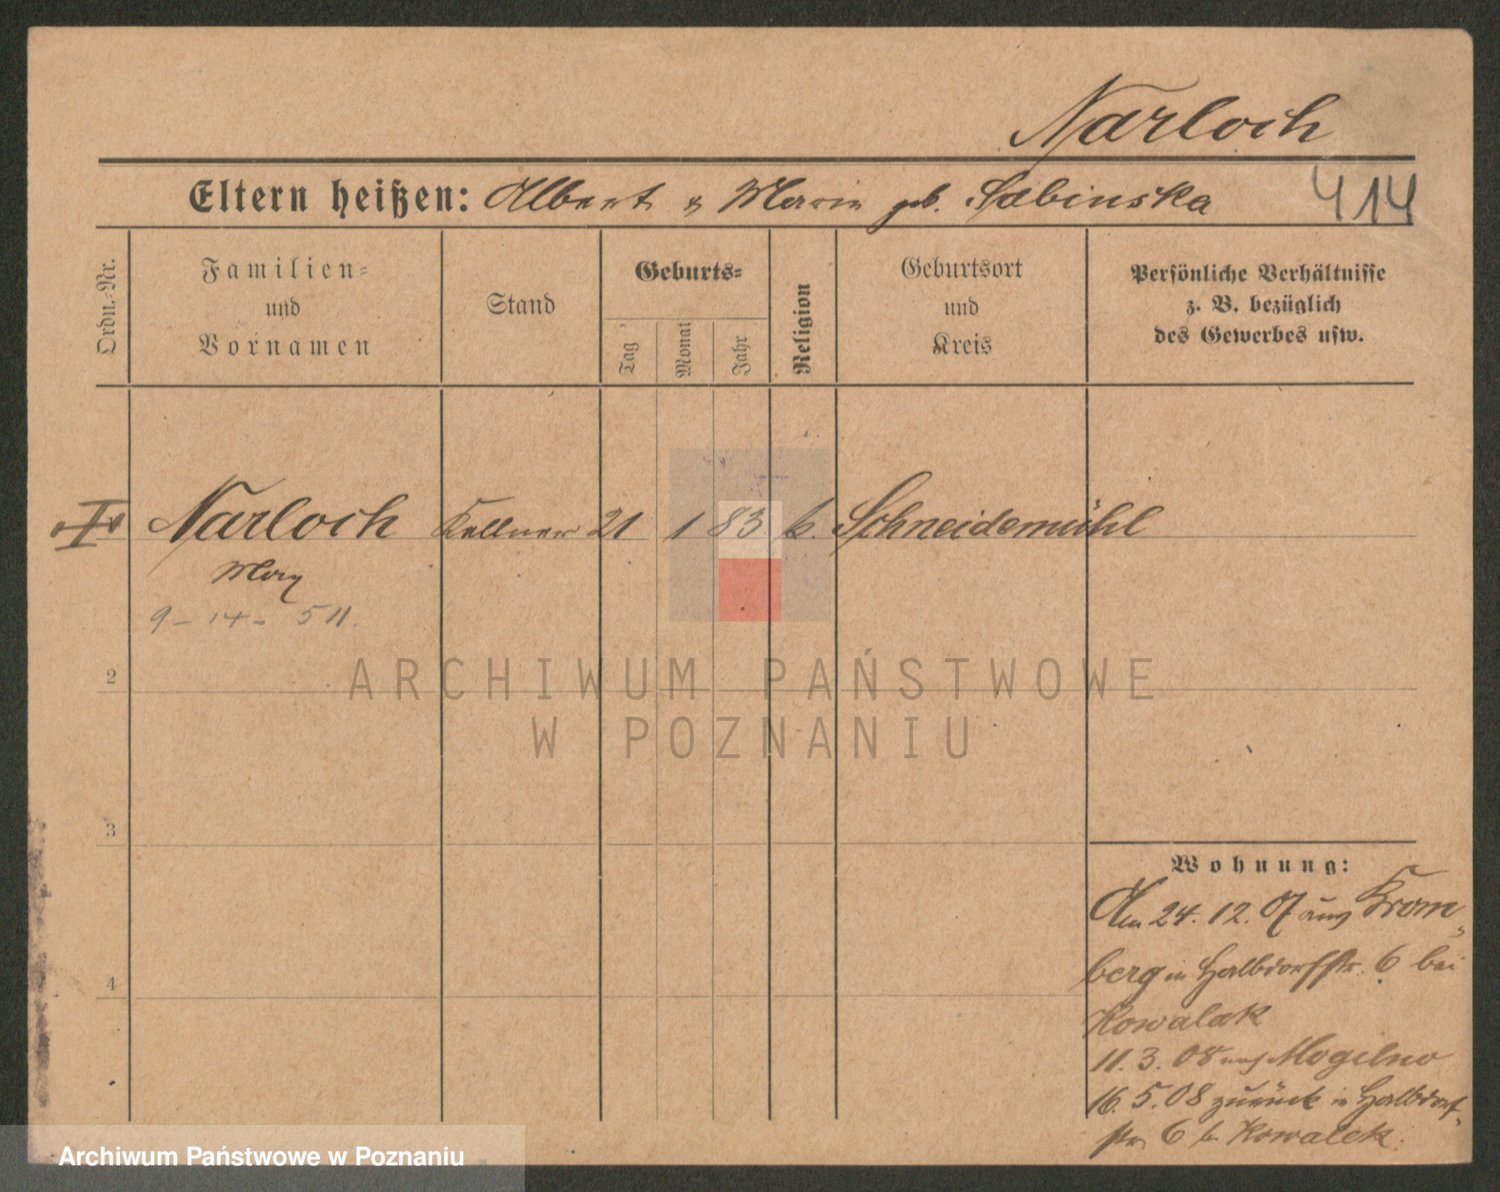 Narloch
414
Eltern heißen: Albert & Marie geb. Sabinska
Ordn.-Nr.
Familien-
und
Vornamen
Stand
Geburts-
Tag
Monat
Jahr
Religion
Geburtsort
und
Kreis
Persönliche Verhältnisse
z. B. bezüglich
des Gewerbes usw.
I Narloch Kellner 21 1 83 k. Schneidemühl
Max
9 - 14 - 511.
2
ARCHIWUM PAŃSTWOWE
W POZNANIU
3
Wohnung:
Am 24. 12. 07 aus Krom-
berg in Halbdorfstr. 6 bei
Kowalak
4
11. 3. 08 nach Mogilno
16. 5. 08 zurück in Halbdorf-
str. 6 b. Kowalek.
Archiwum Państwowe w Poznaniu